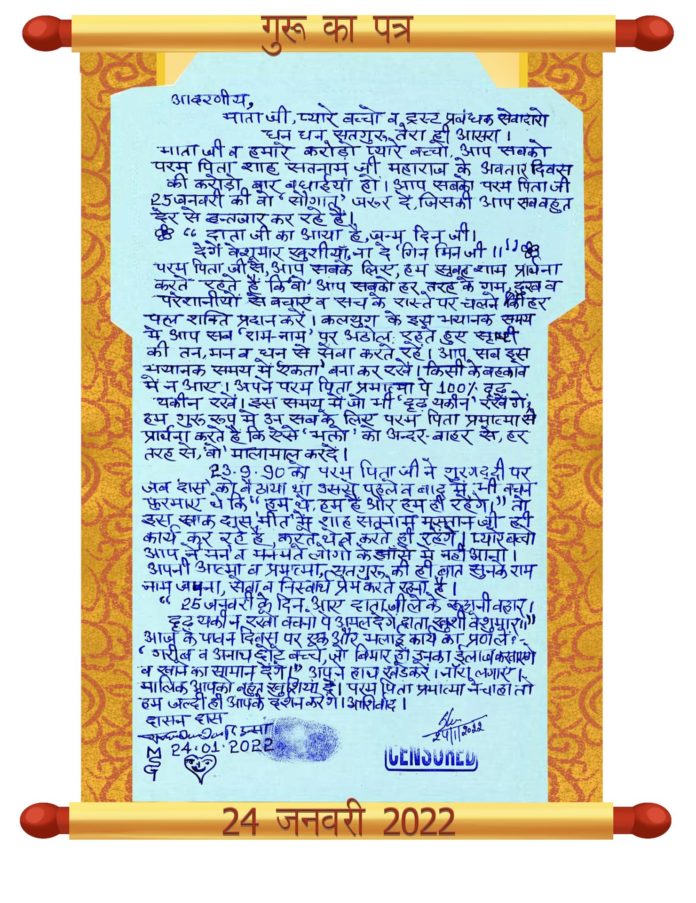 गुरू का पत्र
आदरणीय,
माता जी, प्यारे बच्चो व ट्रस्ट प्रबंधक सेवादारो
धन धन सतगुरू तेरा ही आसरा।
माता जी व हमारे करोड़ो प्यारे बच्चो, आप सबको
परम पिता शाह सतनाम जी महाराज के अवतार दिवस
की करोड़ो बार बधाईयां हो। आप सबको परम पिता जी
25 जनवरी की वो 'सौगात' जरूर दें, जिसकी आप सब बहुत
देर से इन्तजार कर रहे हैं।
“ दाता जी का आया है, जन्म दिन जी।
देगें बेशुमार खुशीयाँ, ना दे 'गिन मिन जी ।।”
परम पिता जी से, आप सबके लिए, हम सुबह शाम प्रार्थना
करते रहते हैं कि 'वो' आप सबको हर तरह के गम, दुख व
परेशानीयो से बचाएं व सच के रास्ते पर चलने की हर
पल शक्ति प्रदान करें। कलयुग के इस भयानक समय
में आप सब 'राम-नाम' पर अडोल रहते हुए सृष्टी
की तन, मन व धन से सेवा करते रहें। आप सब इस
भयानक समय में 'एकता' बना कर रखें। किसी के बहकावे
में न आए। अपने परम पिता प्रमात्मा पे 100% दृढ़
यकीन रखें। इस समय में जो भी 'दृढ़ यकीन' रखेगें,
हम गुरू रूप में उन सब के लिए परम पिता प्रमात्मा से
प्रार्थना करते हैं कि ऐसे 'भक्तों' को अन्दर-बाहर से, हर
तरह से, 'वो' मालामाल करदें।
23-9-90 को परम पिता जी ने गुरगद्दी पर
जब 'दास' को बैठाया था उससे पहले व बाद में भी वचन
फरमाए थे कि “हम थे, हम हैं और हम ही रहेंगे।” तो
इस खाक दास मीत में शाह सतनाम मस्तान जी ही
कार्य कर रहे हैं, करते थे व करते ही रहेंगे। प्यारे बच्चो
आप ने मन व मनमते लोगो के झाँसे में नहीं आना।
अपनी आत्मा व प्रमात्मा, सतगुरू की ही बात सुनके राम
नाम जपना, सेवा व निस्वार्थ प्रेम करते रहना है।
“25 जनवरी के दिन आए दाता जी ले के रूहानी बहार।
दृढ़ यकीन रखो वचनो पे अमल देगें दाता खुशी बेशुमार।।”
आज के पावन दिवस पर एक और भलाई कार्य का प्रण लें:-
'गरीब व अनाथ छोटे बच्चे, जो बिमार हो उनका ईलाज करवाएंगे
व खाने का सामान देंगे।” अपने हाथ खड़े करें। नारा लगाएं।
मालिक आपको बहुत खुशियां दें। परम पिता प्रमात्मा ने चाहा तो
हम जल्दी ही आपके दर्शन करेंगे। आशिर्वाद।
दासन दास
24.01.2022
MSG
24/1/2022
CENSORED
24 जनवरी 2022